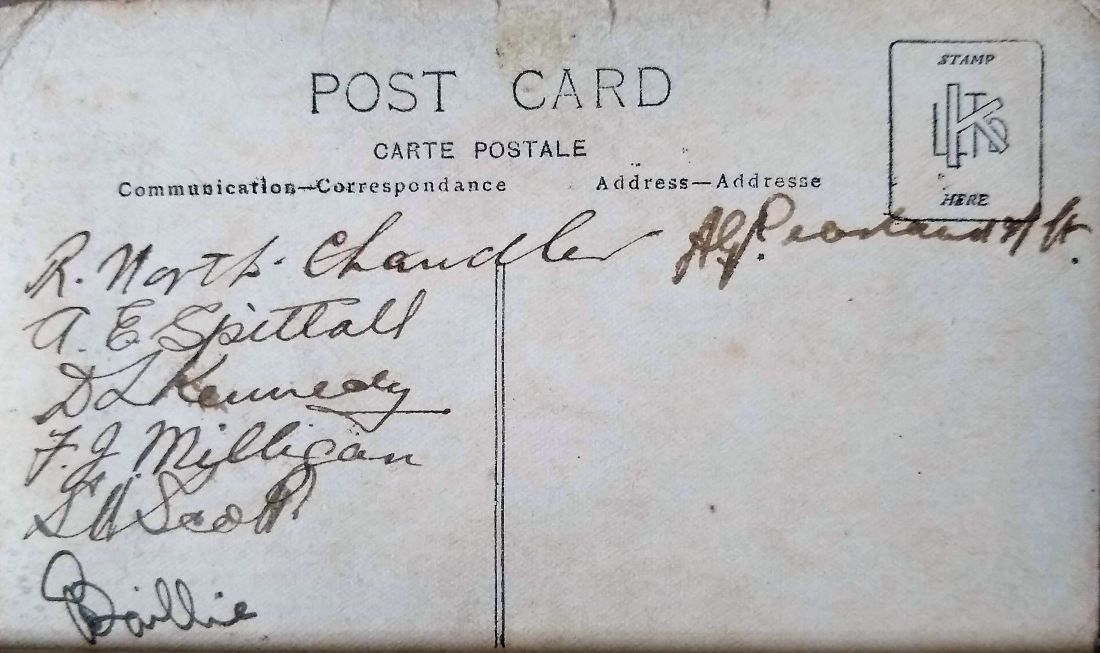 POST CARD
CARTE POSTALE
Communication—Correspondance
Address—Addresse
STAMP
K LTD
HERE
R. North-Chandler
A. E. Spittall
D L Kennedy
F. J. Milligan
S H Scott
Baillie
A. G.